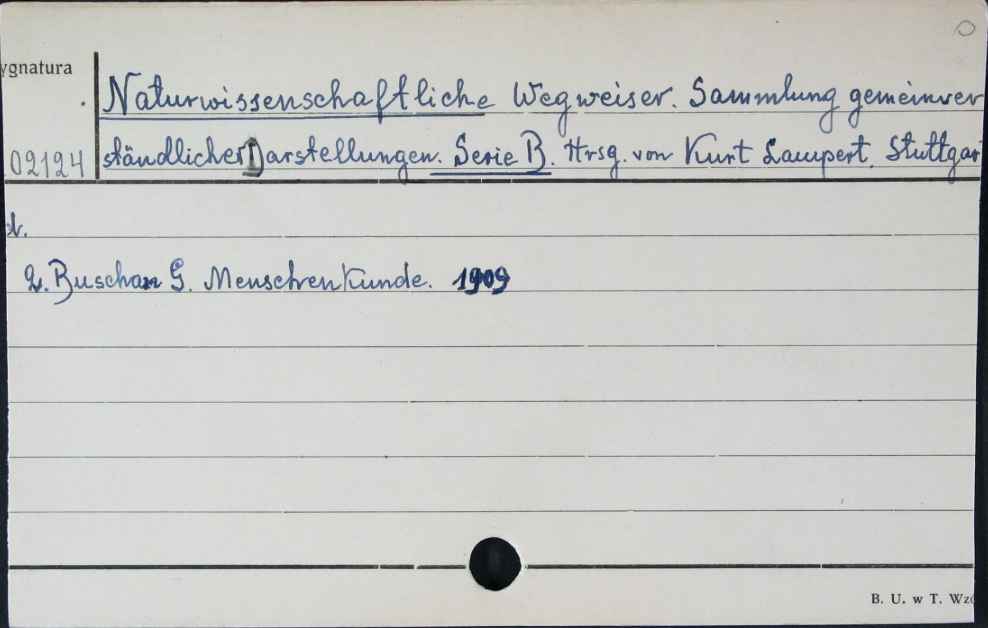 ygnatura
Naturwissenschaftliche Wegweiser. Sammlung gemeinver
02124 ständlicher Darstellungen. Serie B. Hrsg. von Kurt Lampert. Stuttgar
t.
2. Buschan G. Menschenkunde. 1909
B. U. w T. Wzó